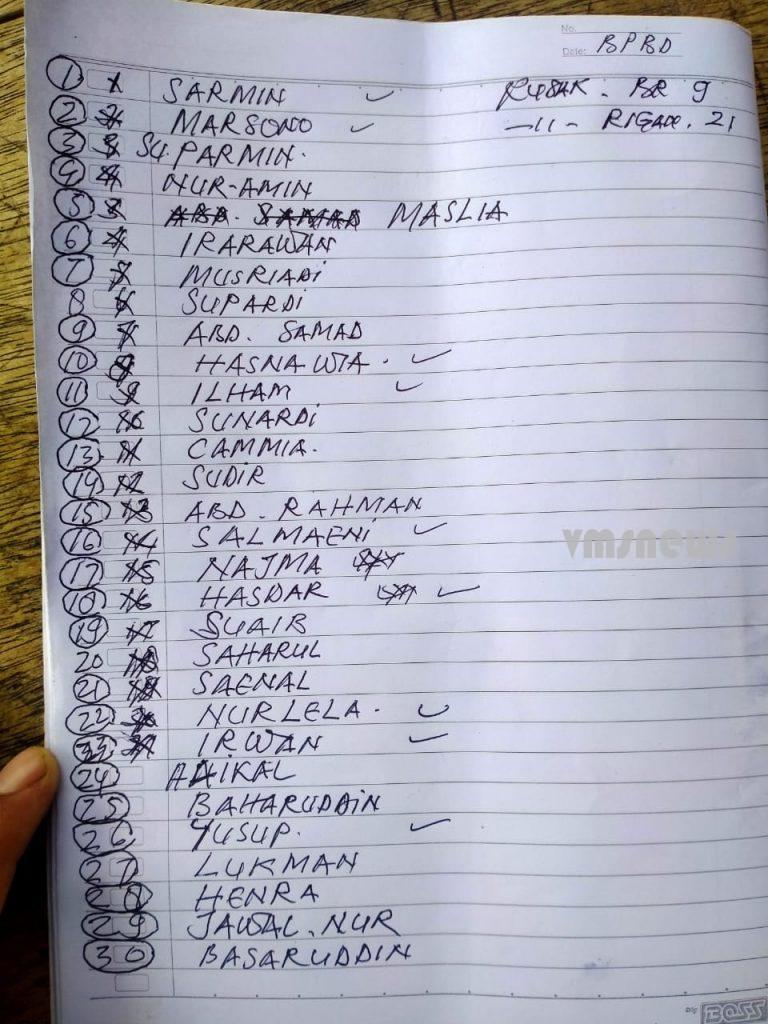 No.
Date: BPBD
RUSAK - BR 9
-11- RIGAN. 21
1 SARMIN ✓
2 MARSONO ✓
3 SU PARMIN.
4 NUR-AMIN
5 MASLIA
6 IRARAWAN
7 MUSRIADi
8 SUPARDi
9 ABD. SAMAD
10 HASNAWIA. ✓
11 ILHAM ✓
12 SUNARDi
13 CAMMIA.
14 SUDIR
15 ABD. RAHMAN
16 SALMAENi ✓
17 NAJMA
18 HASDAR ✓
19 SUAIB
20 SAHARUL
21 SAENAL
22 NURLELA. ✓
23 IRWAN ✓
24 HAIKAL
25 BAHARUDDiN
26 YUSUP. ✓
27 LUKMAN
28 HENRA
29 JAWAL.NUR
30 BASARUDDIN
vmsnews
By BOSS